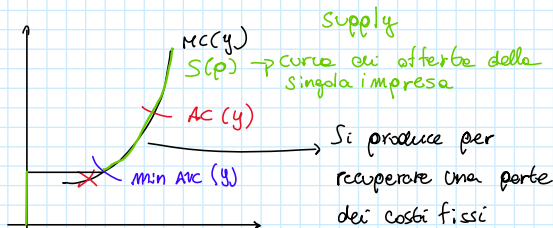 Supply
MC(y)
S(p) → curva di offerta della
singola impresa
AC(y)
Si produce per
min AVC (y)
recuperare una parte
dei costi fissi